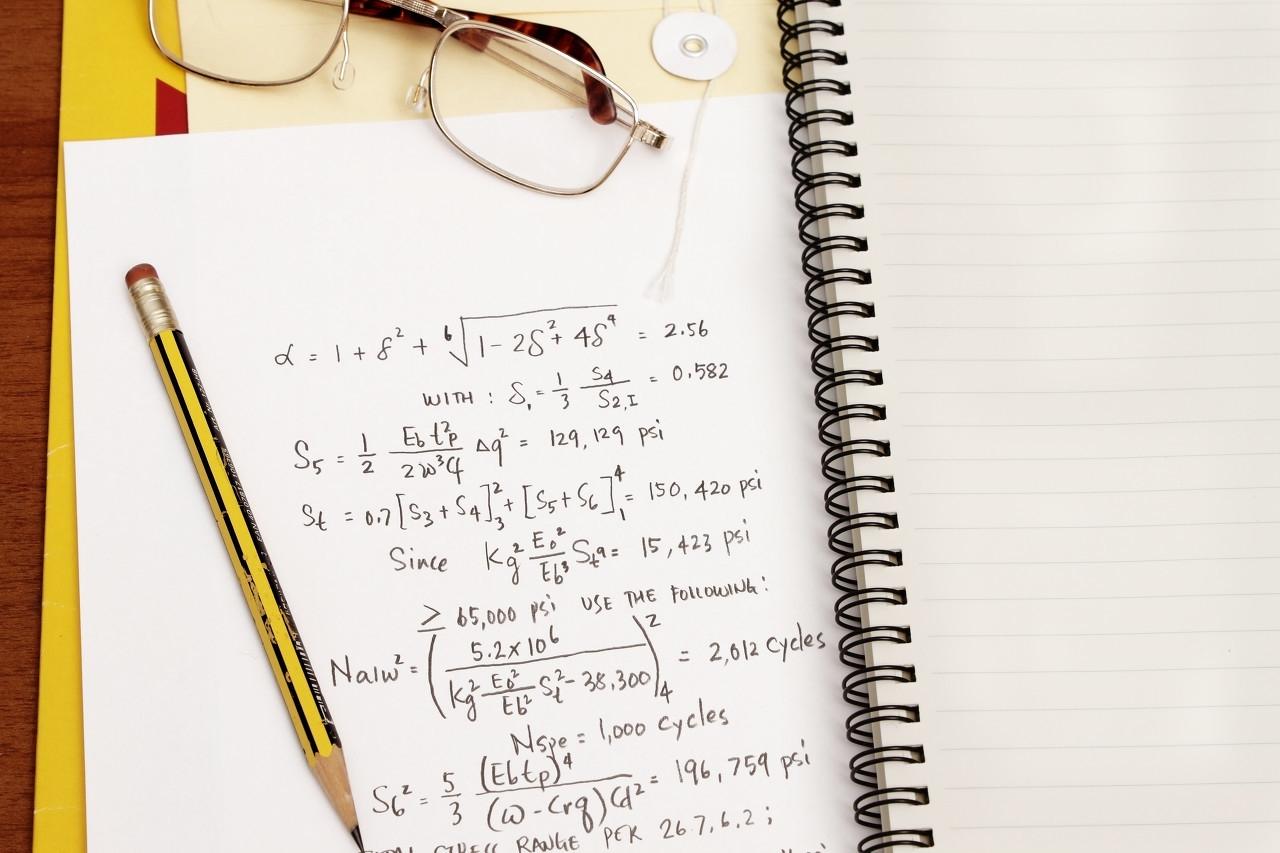 α = 1 + δ² + ⁶√(1 - 2δ² + 4δ⁴) = 2.56
WITH : δ₁ = 1/3 S4/S2,I = 0.582
S₅ = 1/2 Eb t²p / 2w³Cf Δq² = 129,129 psi
St = 0.7[S₃ + S₄]²₃ + [S₅ + S₆]⁴₁ = 150,420 psi
Since Kg² Eo²/Eb³ Stᵃ = 15,423 psi
≥ 65,000 psi USE THE FOLLOWING:
Nalw² = (5.2 x 10⁶ / Kg² Eo²/Eb² St² - 38,300)²₄ = 2,012 cycles
Nspe = 1,000 cycles
S6² = 5/3 (Ebtp)⁴ / (w - Crq)Cd² = 196,759 psi
STRESS RANGE PER 26.7.6.2 ;